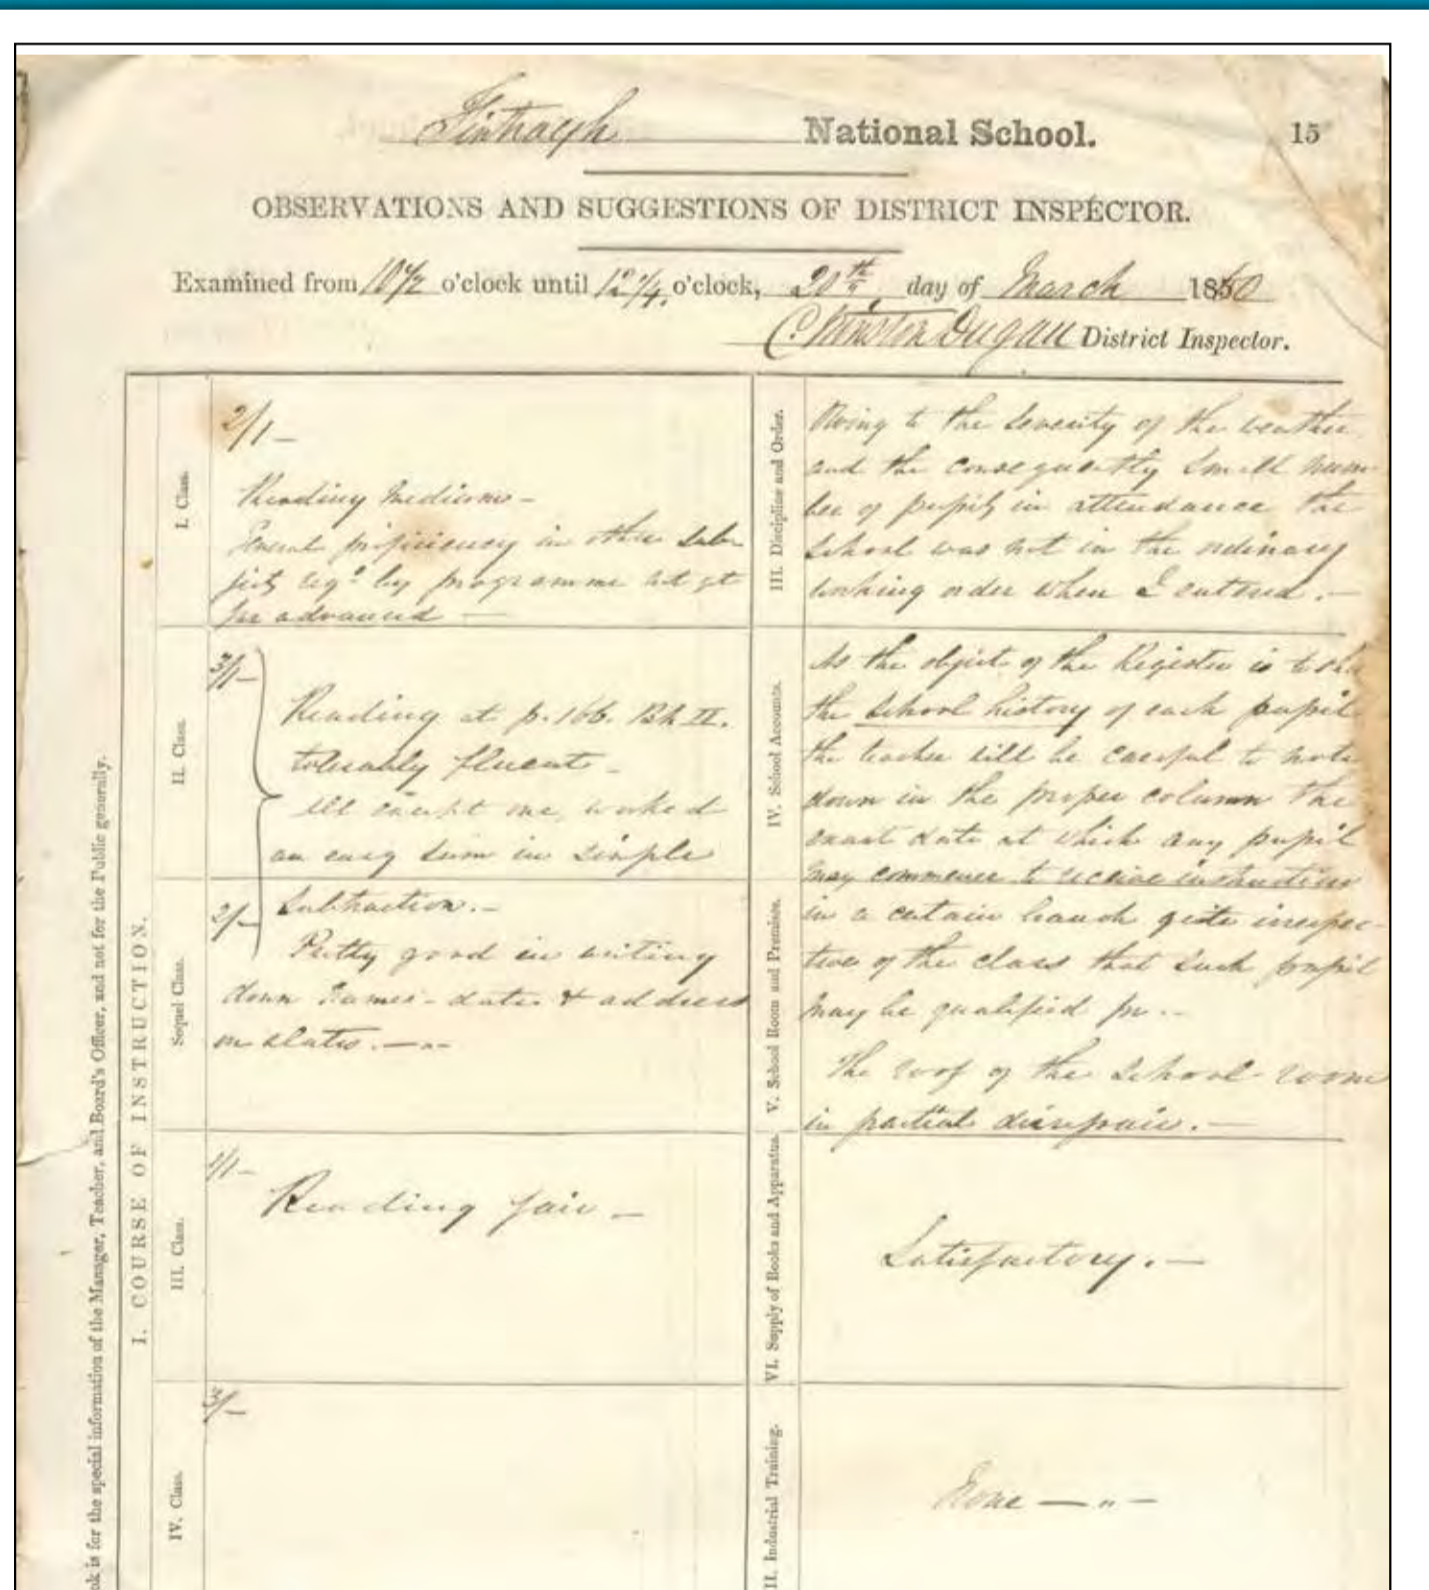 Fintragh National School. 15
OBSERVATIONS AND SUGGESTIONS OF DISTRICT INSPECTOR.
Examined from 10½ o'clock until 12¼ o'clock, 20th day of March 1860
C. Winston Dugan District Inspector.
ok is for the special information of the Manager, Teacher, and Board's Officer, and not for the Public generally.
I. COURSE OF INSTRUCTION.
I. Class.
2/1 –
Reading Medium –
General proficiency in other sub
jects reqd by programme not yet
far advanced —
II. Class.
3/1 –
Reading at p. 166. Bk II.
tolerably fluent –
All except one, worked
an easy sum in Simple
Sequel Class.
2/–
Subtraction. –
Pretty good in writing
down Names – dates & address
on slates. —
III. Class.
1/1 –
Reading fair –
IV. Class.
3/–
III. Discipline and Order.
Owing to the severity of the weather
and the consequently small num
ber of pupils in attendance the
School was not in the ordinary
working order when I entered. –
IV. School Accounts.
As the object of the Register is to
the School history of each pupil
the teacher will be careful to note
down in the proper column the
exact date at which any pupil
may commence to receive instruction
V. School Room and Premises.
in a certain branch quite irrespec-
tive of the class that such pupil
may be qualified for. –
The roof of the School-room
in partial disrepair. –
VI. Supply of Books and Apparatus.
Satisfactory. –
II. Industrial Training.
None — " —